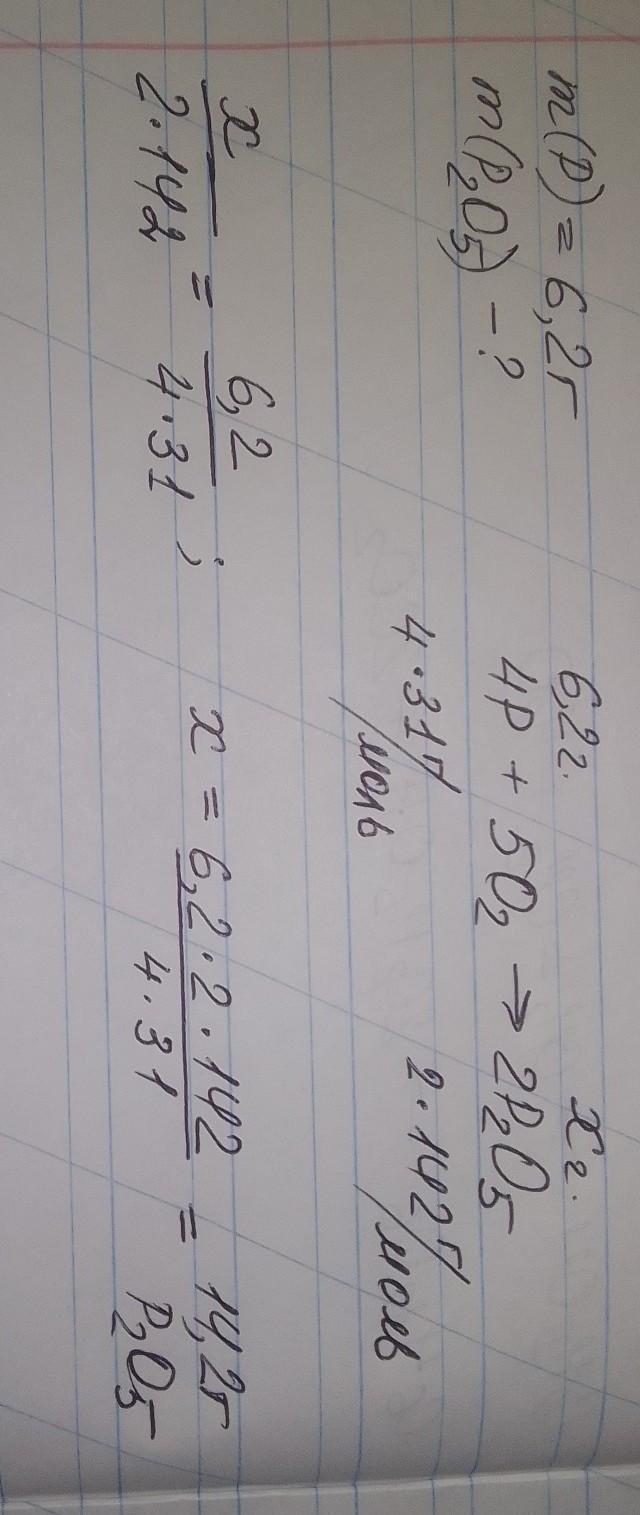 m(P) = 6,2г
6,2г. xг.
m(P₂O₅) - ? 4P + 5O₂ → 2P₂O₅
4·31г/моль 2·142г/моль
x/2·142 = 6,2/4·31 ; x = 6,2·2·142/4·31 = 14,2г
P₂O₅